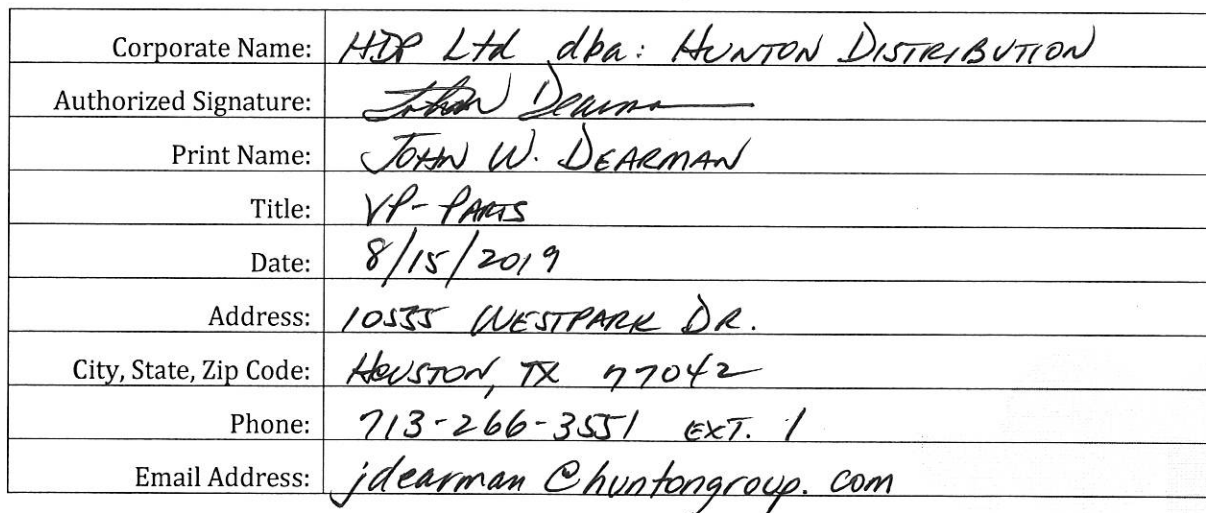 Corporate Name: HDP Ltd dba: HUNTON DISTRIBUTION
Authorized Signature: John Dearman
Print Name: JOHN W. DEARMAN
Title: VP-PARTS
Date: 8/15/2019
Address: 10555 WESTPARK DR.
City, State, Zip Code: HOUSTON, TX 77042
Phone: 713-266-3551 EXT. 1
Email Address: jdearman@huntongroup.com